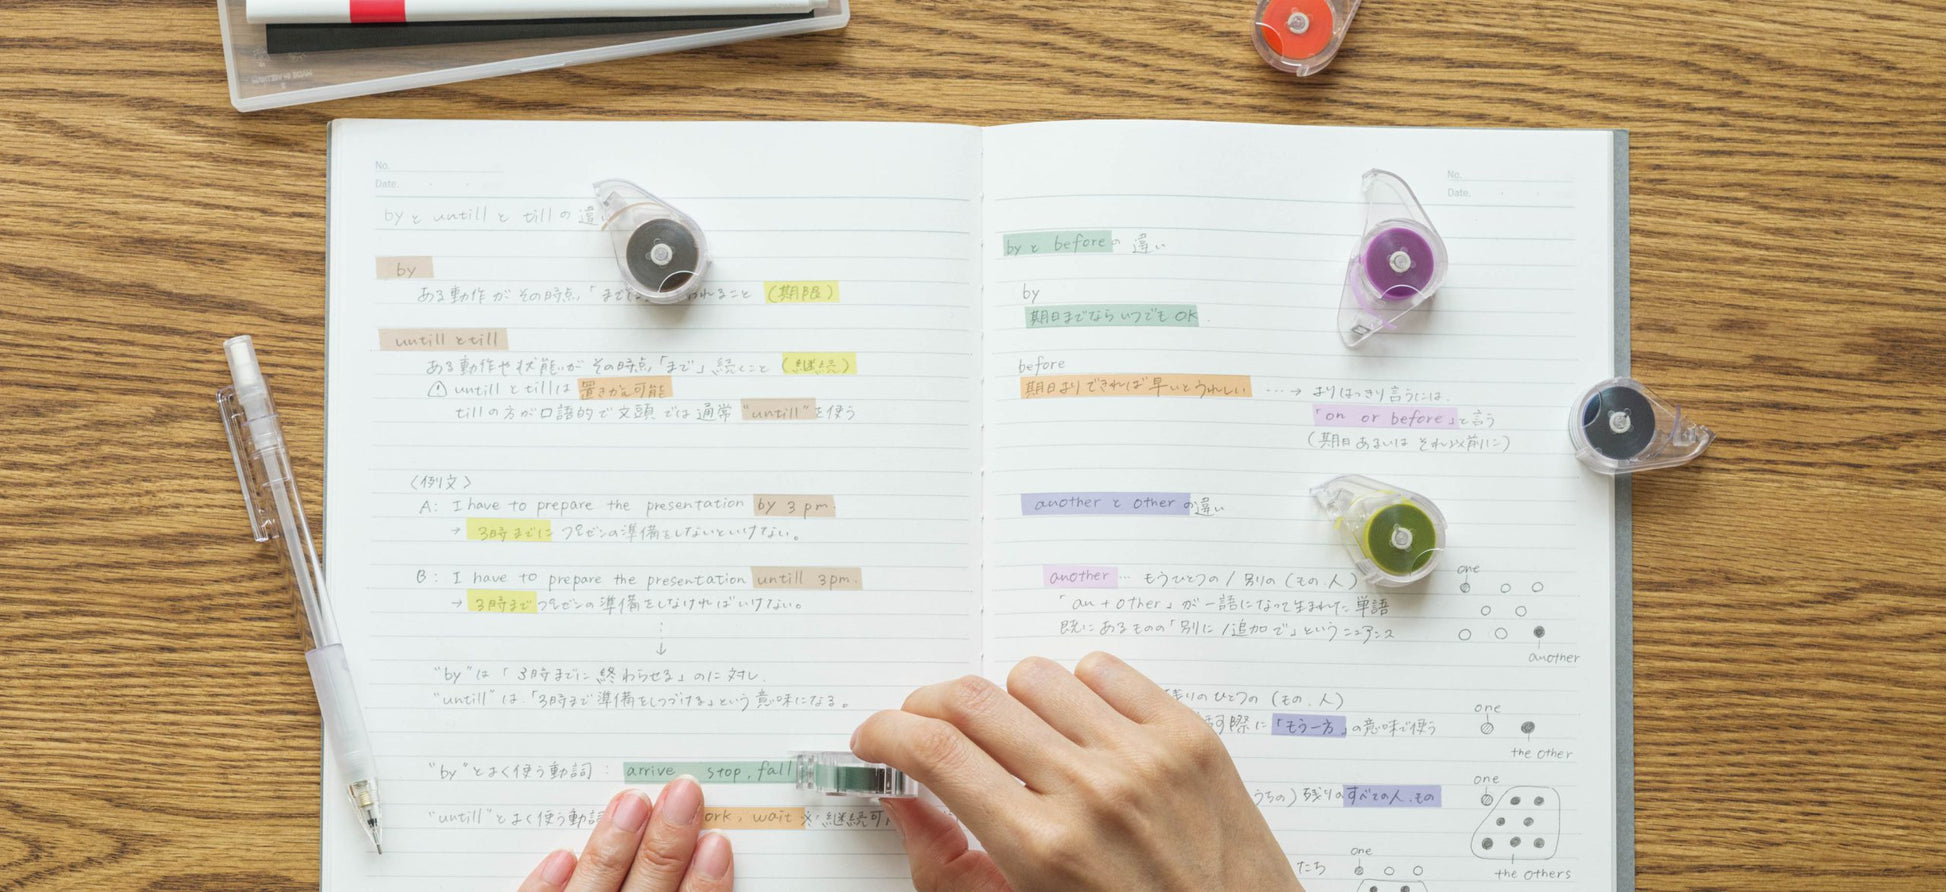 No.
Date.
byと untillと tillの 違
by
ある動作が その時点「までに われること (期限)
untillとtill
ある動作や状態が その時点「まで」続くこと (継続)
untillとtillは 置きかえ可能
tillの方が口語的で文頭では通常 "untill"を使う
〈例文〉
A: I have to prepare the presentation by 3 pm.
→ 3時までに プレゼンの準備をしないといけない。
B: I have to prepare the presentation untill 3pm.
→ 3時まで プレゼンの準備をしなければいけない。
↓
"by"は「3時までに 終わらせる」のに対し、
"untill"は、「3時まで準備をしつづける」という意味になる。
"by"とよく使う動詞 : arrive stop, fall
"untill"とよく使う動詞 ork, wait 継続可
No.
Date.
byと beforeの 違い
by
期日までなら いつでも OK
before
期日よりできれば 早いとうれしい ‥‥→ よりはっきり言うには、
「on or before」と言う
(期日あるいは それ以前に)
anotherと otherの違い
another … もうひとつの / 別の (もの、人)
「an + other」が一語になって生まれた単語
既にあるものの「別に / 追加で」というニュアンス
one
another
残りのひとつの (もの、人)
際に「もう一方」の意味で使う
one
the other
うちの) 残りのすべての人、もの
one
the others
たち
one